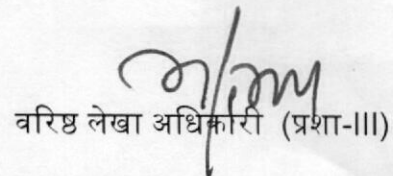 वरिष्ठ लेखा अधिकारी (प्रशा-III)